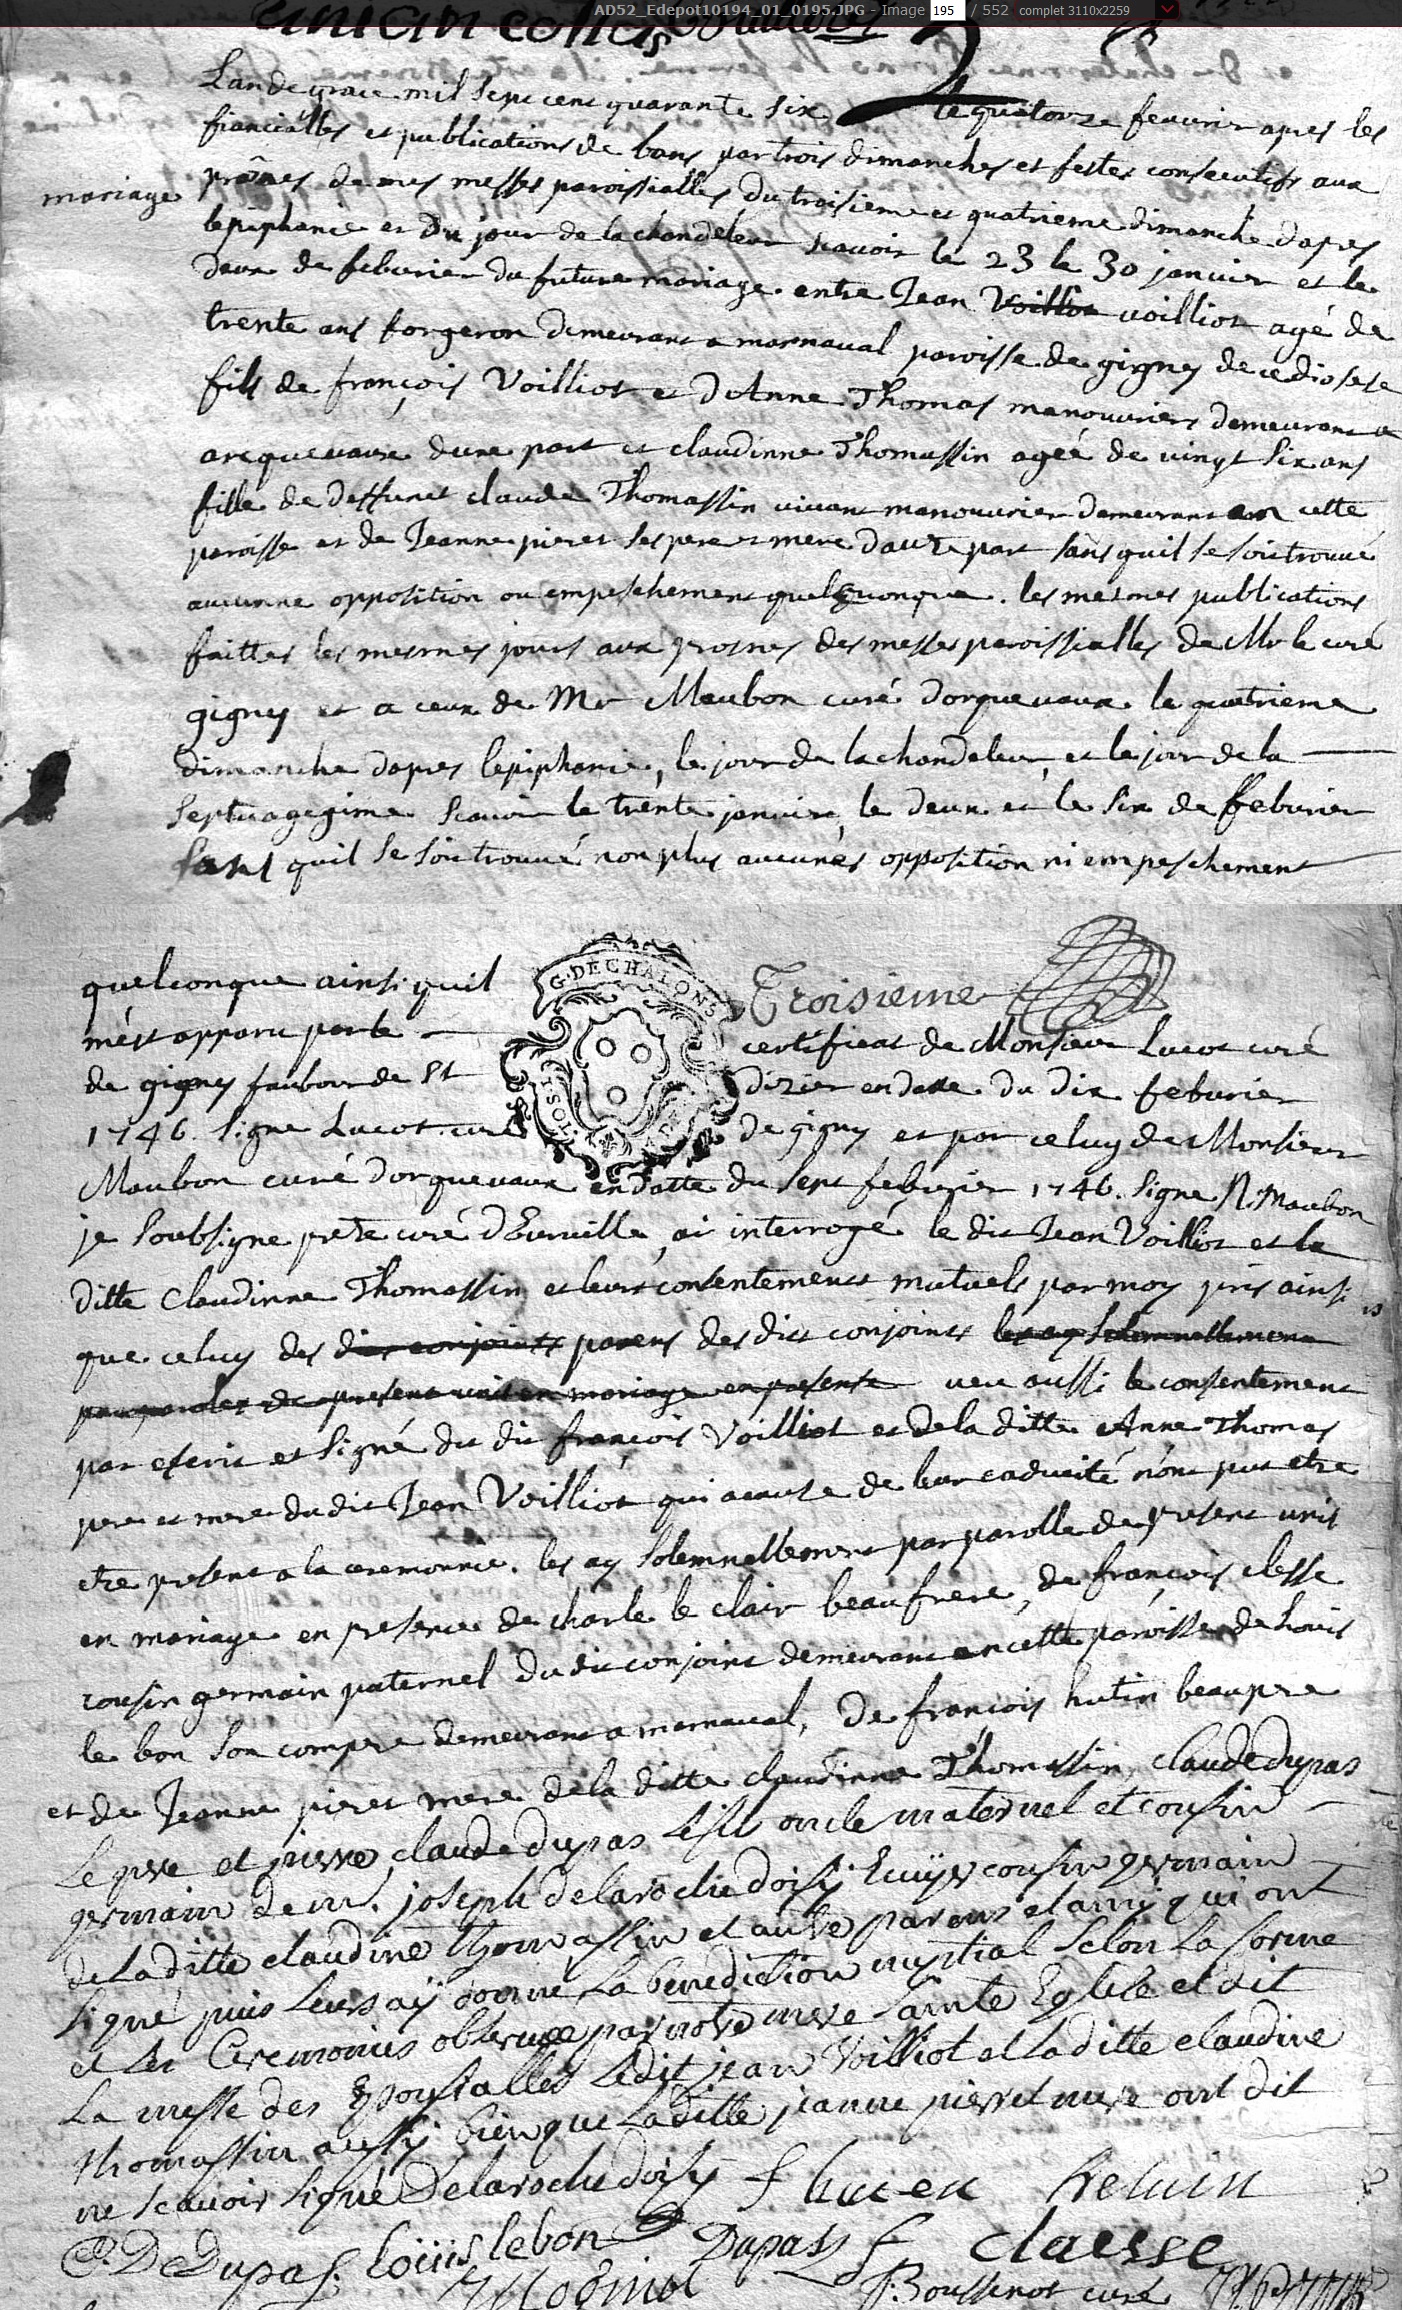 AD52_Edepot10194_01_0195.JPG - Image 195 / 552 complet 3110x2259
Lan de grace mil sept cent quarante six le quatorze feuurier apres les
fiancialles et publications de bans par trois dimanches et festes consecutifs aux
mariage
prônes de mes messes paroissialles du troisieme et quatrieme dimanche dapres
lepiphanie et du jour de la chandeleur scauoir le 23 le 30 januier et le
deux de feburier du future mariage entre Jean Voilliot voilliot agé de
trente ans forgeron demeurant a marnaual paroisse de gigny de ce diosese
fils de françois Voilliot et dAnne Thomas manouuriers demeurant a
orquevaux dune part et claudinne Thomassin ageé de vingt six ans
fille de deffunct claude Thomassin viuant manouurier demeurant en cette
paroisse et de Jeanne pieret ses pere et mere dautre part sans quil se soit trouué
aucunne opposition ou empeschement quelquonque . les mesmes publications
faittes les mesmes jours aux prosnes des messes paroissialles de Mr le curé
gigny et a ceux de Mr Maubon curé dorquevaux le quatrieme
dimanche dapres lepiphanie, le jour de la chandeleur, et le jour de la
septuagegime scauoir le trente januier, le deux et le six de feburier
sans quil se soit trouué non plus aucunes opposition ni empeschement
G. DE CHALONS
quelconque ainsi quil Troisieme
mest apparu par le certificat de Monsieur Lucot curé
de gigny faubour de St dizier en datte du dix feburier
1746. signe Lucot curé de gigny et par celuy de Monsieur
Maubon curé dorquevaux en datte du sept feburier 1746. signe N. Maubon
je soubsigne pretre curé dEurville, ai interrogé le dit Jean Voilliot et la
ditte Claudinne Thomassin et leurs consentements mutuels par moy pris ainsi
que celuy des dits conjoints parens des dits conjoints les ay solemnellement
par paroles de present unis en mariage en presence veu aussi le consentement
par escrit et signé du dit françois Voilliot et de la ditte Anne Thomas
pere et mere du dit Jean Voilliot qui a cause de leur caducité nont pus etre
etre present a la ceremonnie. les ay solemnellement par parolle de present unis
en mariage en presence de charle le clair beaufrere, de françois clesse
cousin germain paternel du dit conjoint demeurant en cette paroisse de Louis
le bon son compere demeurant a marnaual, de françois hutin beaupere
et de Jeanne pieret mere de la ditte claudinne Thomassin, claude dupas
Le pere et pierre claude dupas Le fil oncle maternel et cousin
germain de mr. joseph delaroche doisy Ecuÿer cousin germain
de La ditte claudine thomassin et autre parens et amÿ qui ont
signé puis Leurs aÿ donné La benediction nuptial selon La forme
et Les Ceremonies observee par notre mere sainte Eglise et dit
La messe des Epousialles Ledit jean Voilliot et La ditte claudine
thomassin aussÿ bien que La ditte jeanne pierret mere ont dit
ne scauoir signé Delaroche doisy
Dedupas Loüis lebon Dupass Claesse
Boussenot curé